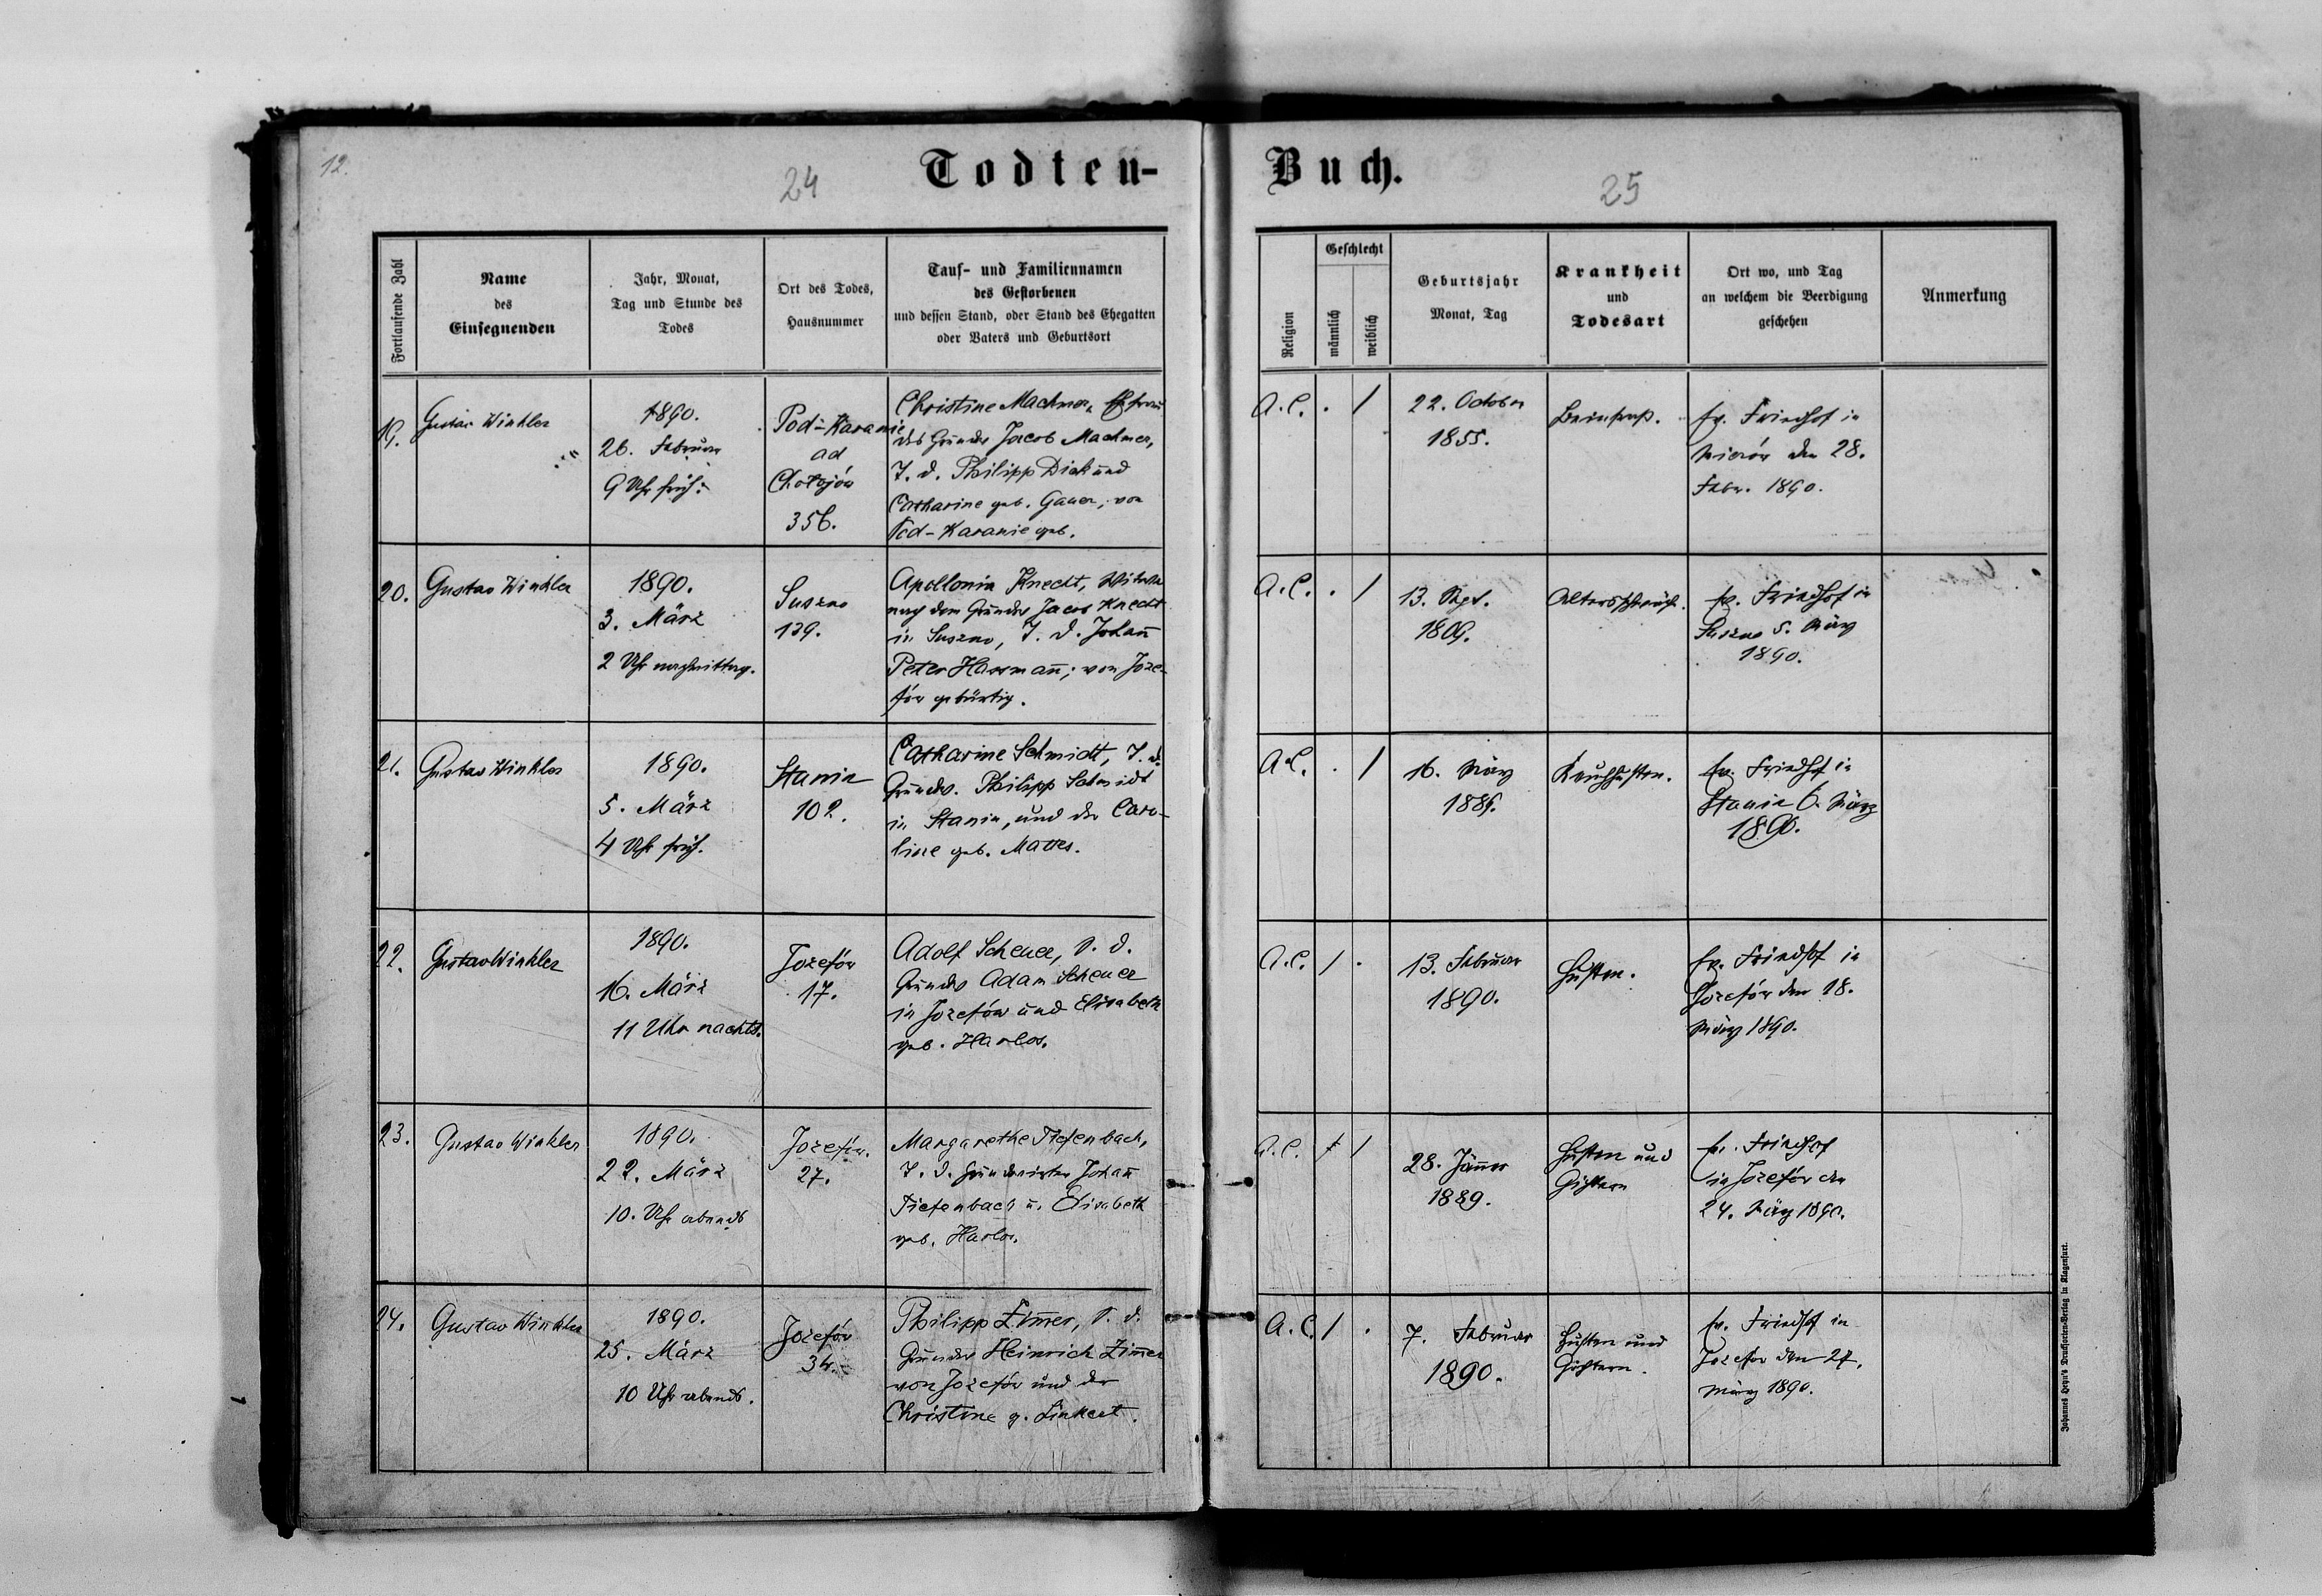 12.
24
Todten-
Fortlaufende Zahl
Name
des
Einsegnenden
Jahr, Monat,
Tag und Stunde des
Todes
Ort des Todes,
Hausnummer
Tauf- und Familiennamen
des Gestorbenen
und dessen Stand, oder Stand des Ehegatten
oder Vaters und Geburtsort
19.
Gustav Winkler
1890.
26. Februar
9 Uhr früh.
Pod-Karanie
ad
Chołojów
356.
Christine Machmer, Ehefrau
des Grundw Jacob Machmer,
T. d. Philipp Dick und
Catharine geb. Gauer, von
Pod-Karanie geb.
20.
Gustav Winkler
1890.
3. März
2 Uhr nachmittag.
Suszno
139.
Apollonia Knecht, Witwe
nach dem Grundw Jacob Knecht
in Suszno, T. d. Johañ
Peter Harrmañ; von Joze-
fów gebürtig.
21.
Gustav Winkler
1890.
5. März
4 Uhr früh.
Stanin
102.
Catharine Schmidt, T. d.
Grundw. Philipp Schmidt
in Stanin, und der Caro-
line geb. Mattes.
22.
Gustav Winkler
1890.
16. März
11 Uhr nachts.
Jozefów
17.
Adolf Scheuer, S. d.
Grundw Adam Scheuer
in Jozefów und Elisabeth
geb. Harlos.
23.
Gustav Winkler
1890.
22. März
10. Uhr abends
Jozefów.
27.
Margarethe Tiefenbach,
T. d. Johañ
Tiefenbach u. Elisabeth
geb. Harlos.
24.
Gustav Winkler
1890.
25. März
10 Uhr abends.
Jozefów
34.
Philipp Zim̄er, S. d.
Grundw Heinrich Zim̄er
von Jozefów und der
Christine g. Linkert.
Buch.
25
Religion
Geschlecht
männlich
weiblich
Geburtsjahr
Monat, Tag
Krankheit
und
Todesart
Ort wo, und Tag
an welchem die Beerdigung
geschehen
Anmerkung
A.C. . /
22. October
1855.
Beinfraß.
ev. Friedhof in
den 28.
Febr. 1890.
A.C. . /
13. Sept.
1809.
Altersschwäche.
ev. Friedhof in
Suszno 5. März
1890.
A.C. . /
16. März
1889.
Keuchhusten.
ev. Friedhof in
Stanin 6. März
1890.
A.C. / .
13. Februar
1890.
Husten.
ev. Friedhof in
Jozefów den 18.
März 1890.
A.C. /
28. Jänner
1889.
Husten und
Gichtern
ev. Friedhof
in Jozefów den
24. März 1890.
A.C. / .
7. Februar
1890.
Husten und
Gichtern.
ev. Friedhof in
Jozefów den 27.
März 1890.
Johannes Heyn's Drucksorten-Verlag in Klagenfurt.